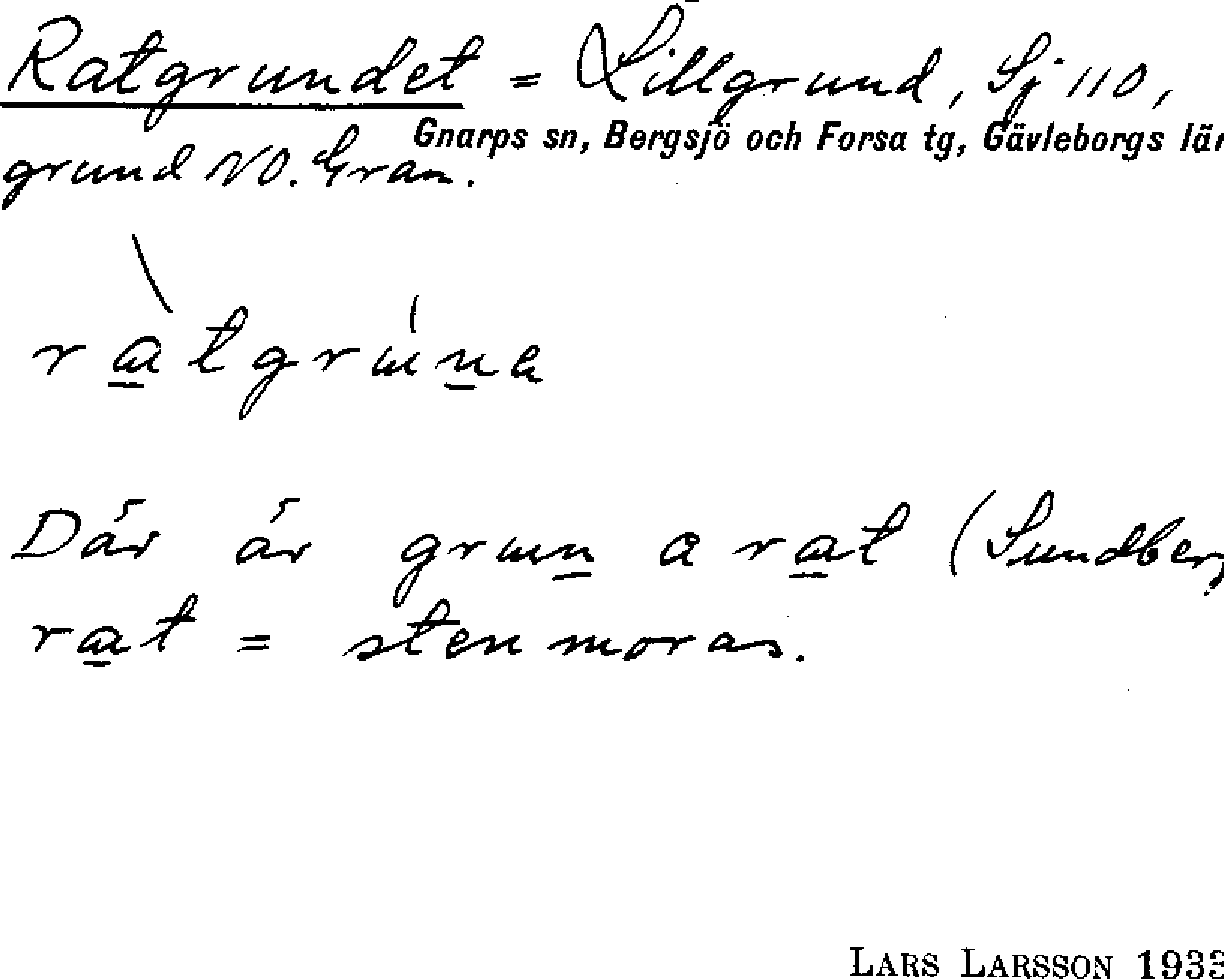 Ratgrundet = Lillgrund, Sj 110,
Gnarps sn, Bergsjö och Forsa tg, Gävleborgs län
grund NO. Gran.
ràtgrúna
Där är grun a rat (Sundberg
rat = stenmoras.
LARS LARSSON 1933